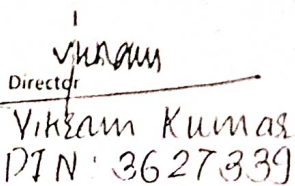 Vikram
Director
Vikram Kumar
DIN: 3627339